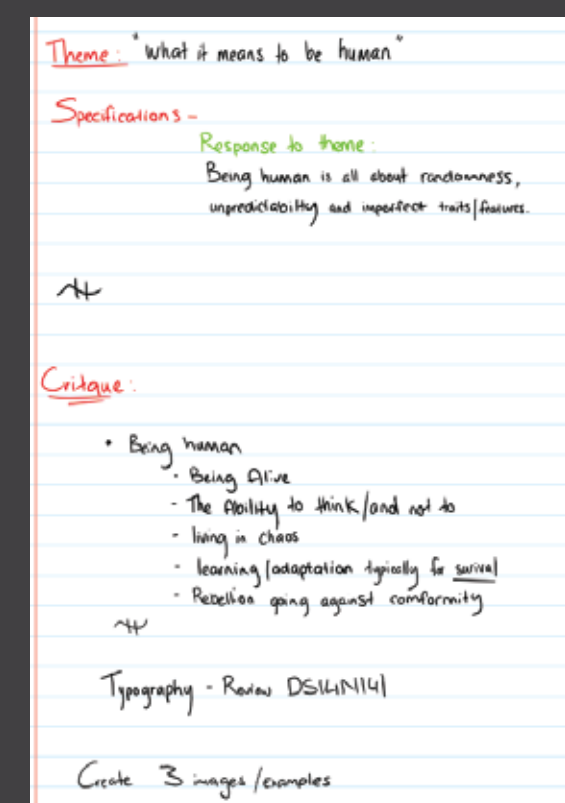 Theme: "what it means to be human"
Specifications -
Response to theme:
Being human is all about randomness,
unpredictability and imperfect traits/features.
Critique:
• Being human
- Being Alive
- The Ability to think/and not to
- living in chaos
- learning/adaptation typically for surival
- Rebellion going against comformity
Typography - Review
Create 3 images/examples